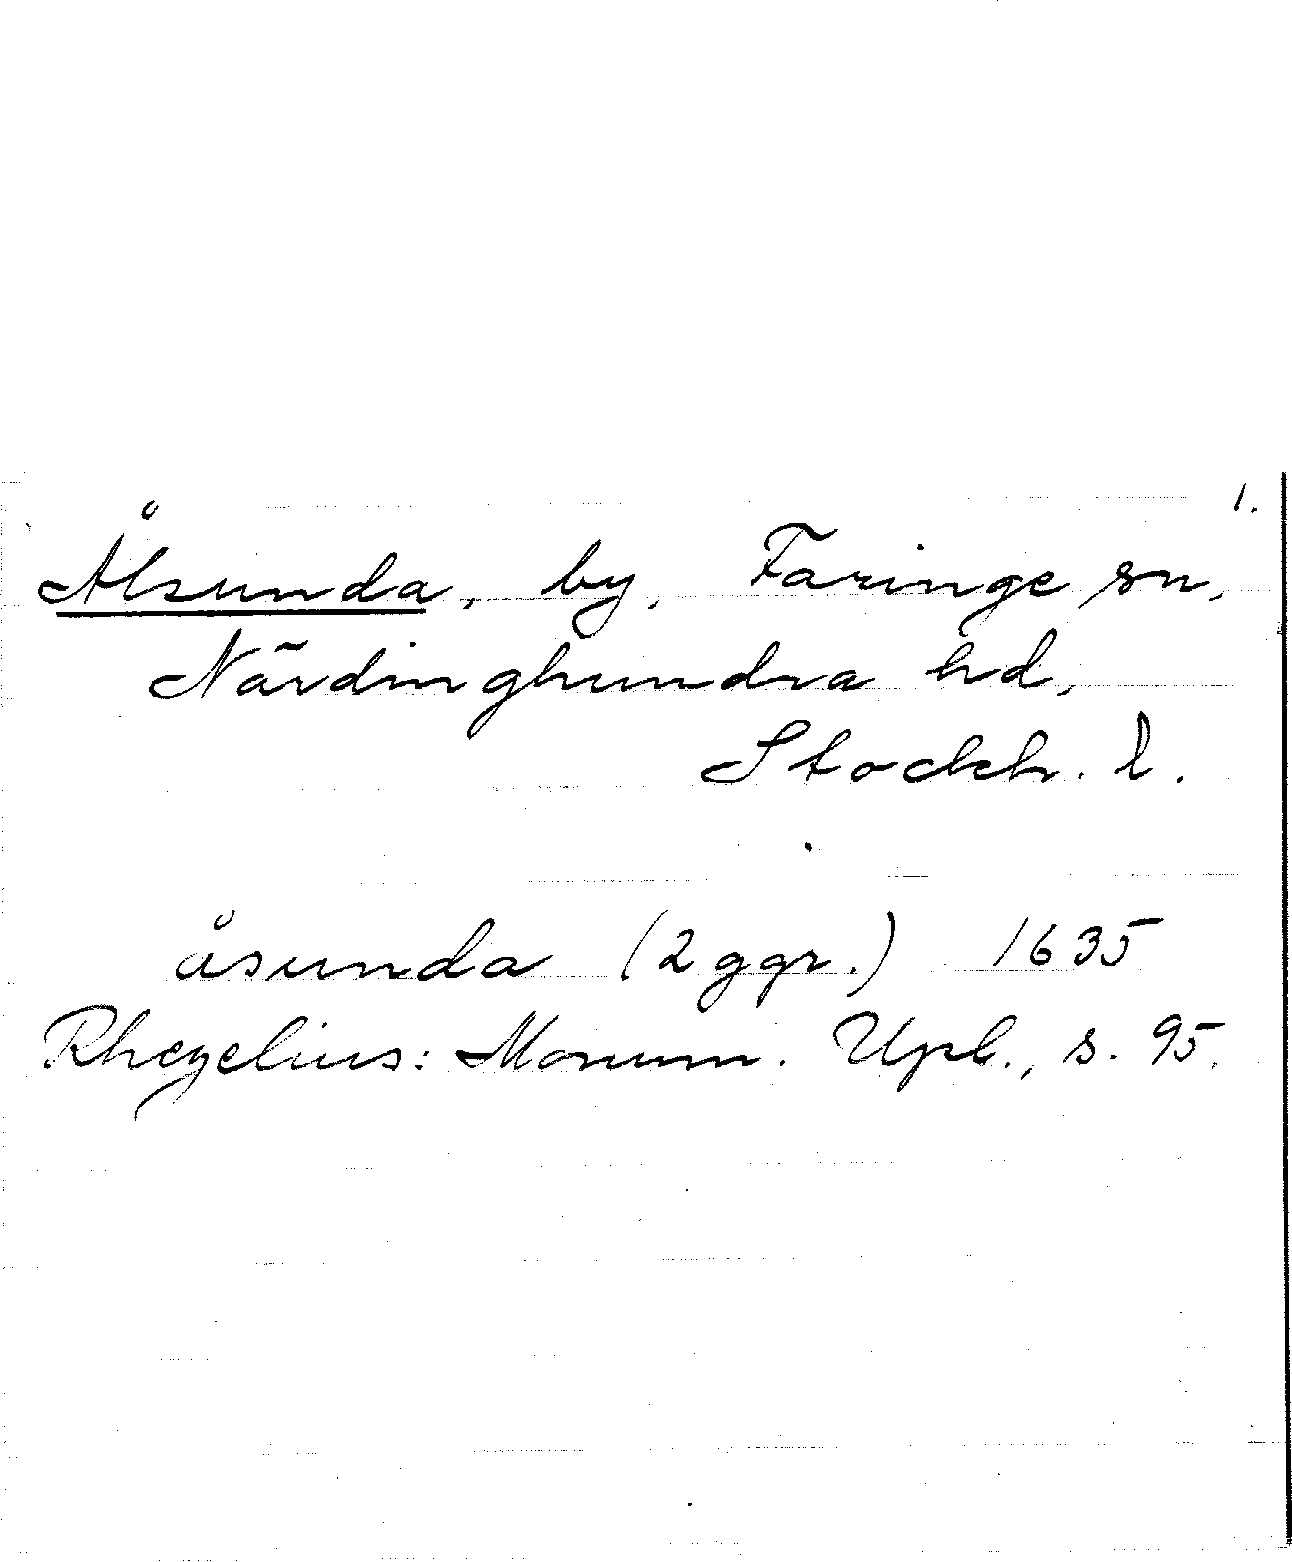 1.
Ålsunda, by, Faringe sn,
Närdinghundra hd,
Stockh. l.
åsunda (2 ggr.) 1635
Rhezelius: Monum. Upl., s. 95.